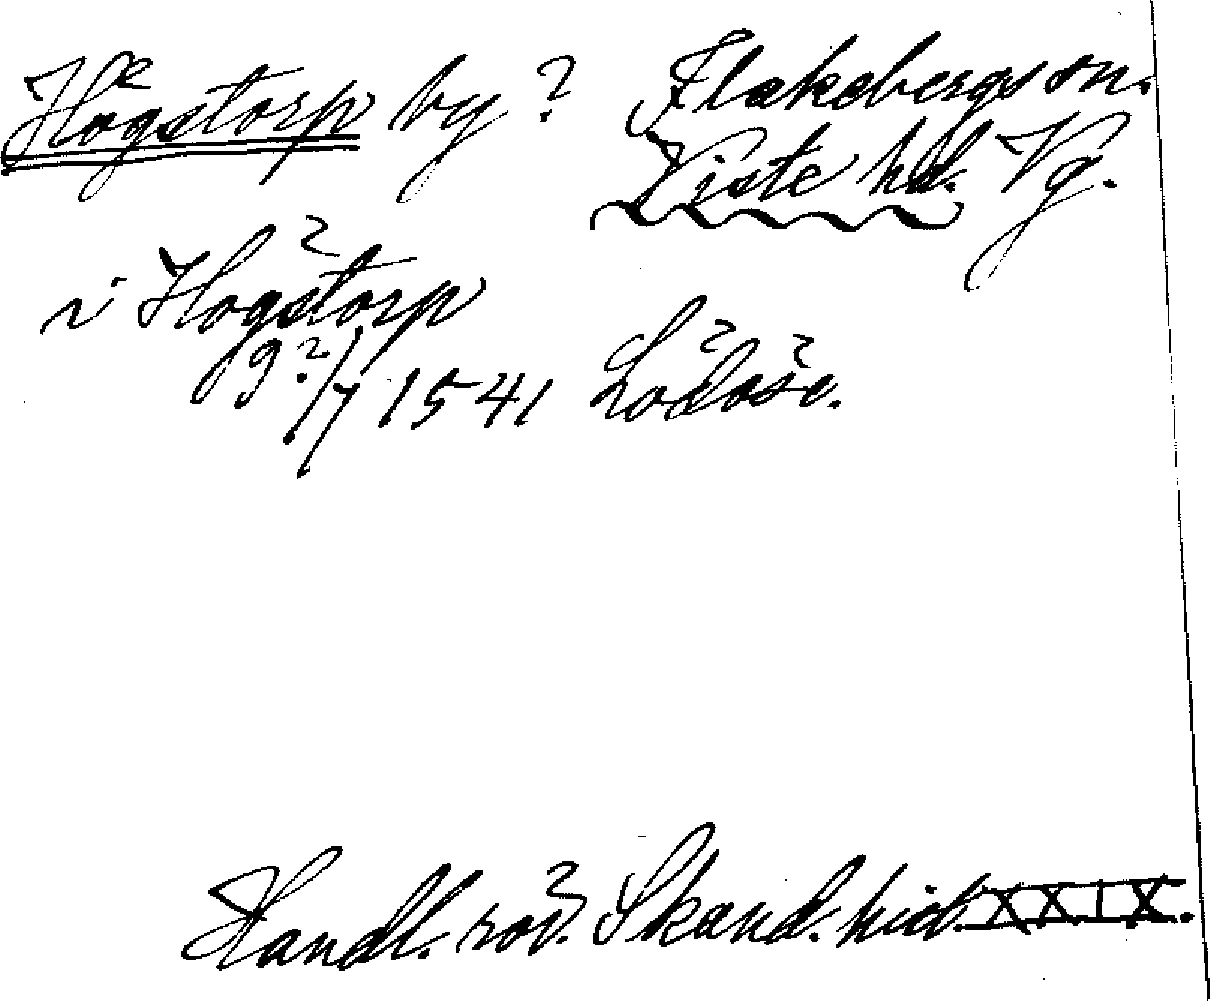 Högstorp by? Flakebergs sn.
Viste hd. Vg.
i Högstorp
19?/7 1541 Lödöse.
Handl. rör. Skand. hist. XXIX.